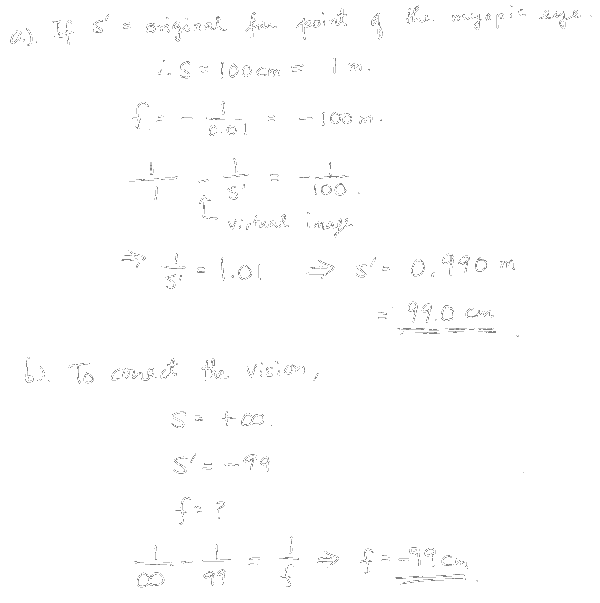 a). If s' = original far point of the myopic eye.
∴ S = 100 cm = 1 m.
f = - 1/0.01 = - 100 m.
1/1 - 1/s' = - 1/100.
virtual image
⇒ 1/s' = 1.01 ⇒ s' = 0.990 m
= 99.0 cm.
b). To correct the vision,
S = +∞.
S' = -99
f = ?
1/∞ - 1/99 = 1/f ⇒ f = -99 cm.